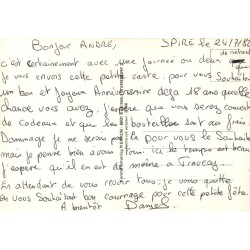 Bonjour ANDRÉ, SPIRE le 24/7/82
c'est certainement avec une journée ou deux de retard
que je vous envois cette petite carte pour vous Souhaiter
un bon et Joyeux Anniversaire deja 18 ans quelle
chance vous avez, j'espère que vous serez comblé
de cadeaux et que les bouteilles sont au frais.
Dommage je me serais fait à pour vous le Souhaiter
mais je pense bien à vous. Ici le temps est beau
j'espère qu'il en est de meme à
En attendant de vous revoir tous, je vous quitte
en vous Souhaitant bon courrage pour cette petite fête.
A bientôt Daniel